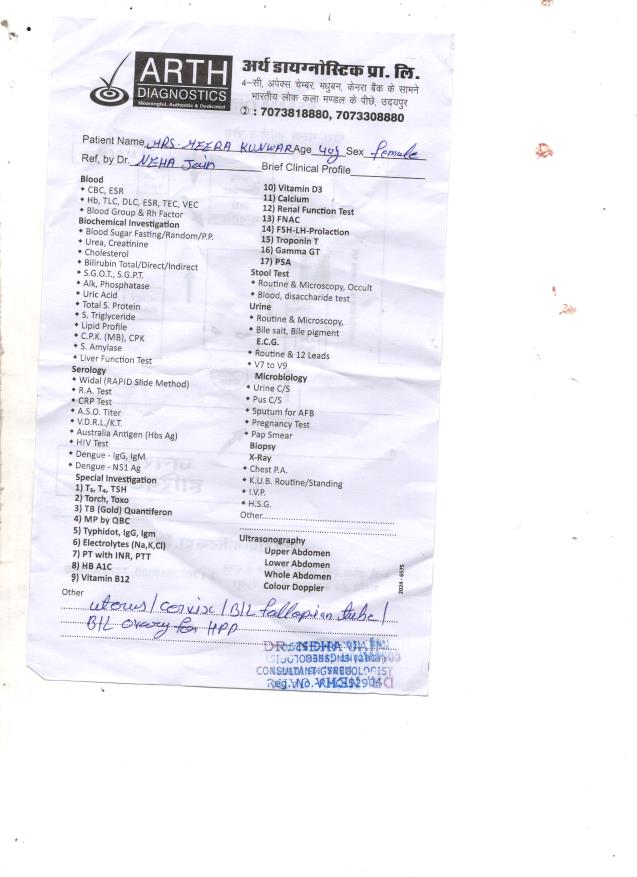 ARTH
DIAGNOSTICS
Meaningful, Authentic & Dedicated
अर्थ डायग्नोस्टिक प्रा. लि.
4-सी, अपेक्स चेम्बर, मधुबन, केनरा बैंक के सामने
भारतीय लोक कला मण्डल के पीछे, उदयपुर
: 7073818880, 7073308880
Patient Name MRS. MEERA KUNWAR Age 40y Sex female
Ref, by Dr. NEHA Jain Brief Clinical Profile
Blood
• CBC, ESR
• Hb, TLC, DLC, ESR, TEC, VEC
• Blood Group & Rh Factor
Biochemical Investigation
• Blood Sugar Fasting/Random/P.P.
• Urea, Creatinine
• Cholesterol
• Bilirubin Total/Direct/Indirect
• S.G.O.T., S.G.P.T.
• Alk, Phosphatase
• Uric Acid
• Total S. Protein
• S. Triglyceride
• Lipid Profile
• C.P.K. (MB), CPK
• S. Amylase
• Liver Function Test
Serology
• Widal (RAPID Slide Method)
• R.A. Test
• CRP Test
• A.S.O. Titer
• V.D.R.L./K.T.
• Australia Antigen (Hbs Ag)
• HIV Test
• Dengue - IgG, IgM
• Dengue - NS1 Ag
Special Investigation
1) T₃, T₄, TSH
2) Torch, Toxo
3) TB (Gold) Quantiferon
4) MP by QBC
5) Typhidot, IgG, Igm
6) Electrolytes (Na,K,Cl)
7) PT with INR, PTT
8) HB A1C
9) Vitamin B12
10) Vitamin D3
11) Calcium
12) Renal Function Test
13) FNAC
14) FSH-LH-Prolaction
15) Troponin T
16) Gamma GT
17) PSA
Stool Test
• Routine & Microscopy, Occult
• Blood, disaccharide test
Urine
• Routine & Microscopy,
• Bile salt, Bile pigment
E.C.G.
• Routine & 12 Leads
• V7 to V9
Microbiology
• Urine C/S
• Pus C/S
• Sputum for AFB
• Pregnancy Test
• Pap Smear
Biopsy
X-Ray
• Chest P.A.
• K.U.B. Routine/Standing
• I.V.P.
• H.S.G.
Other
Ultrasonography
Upper Abdomen
Lower Abdomen
Whole Abdomen
Colour Doppler
2024 - 6575
Other
uterus / cervix / B/L fallopian tube /
B/L ovary for HPP
CONSULTANT GYNECOLOGIST
Reg. No.